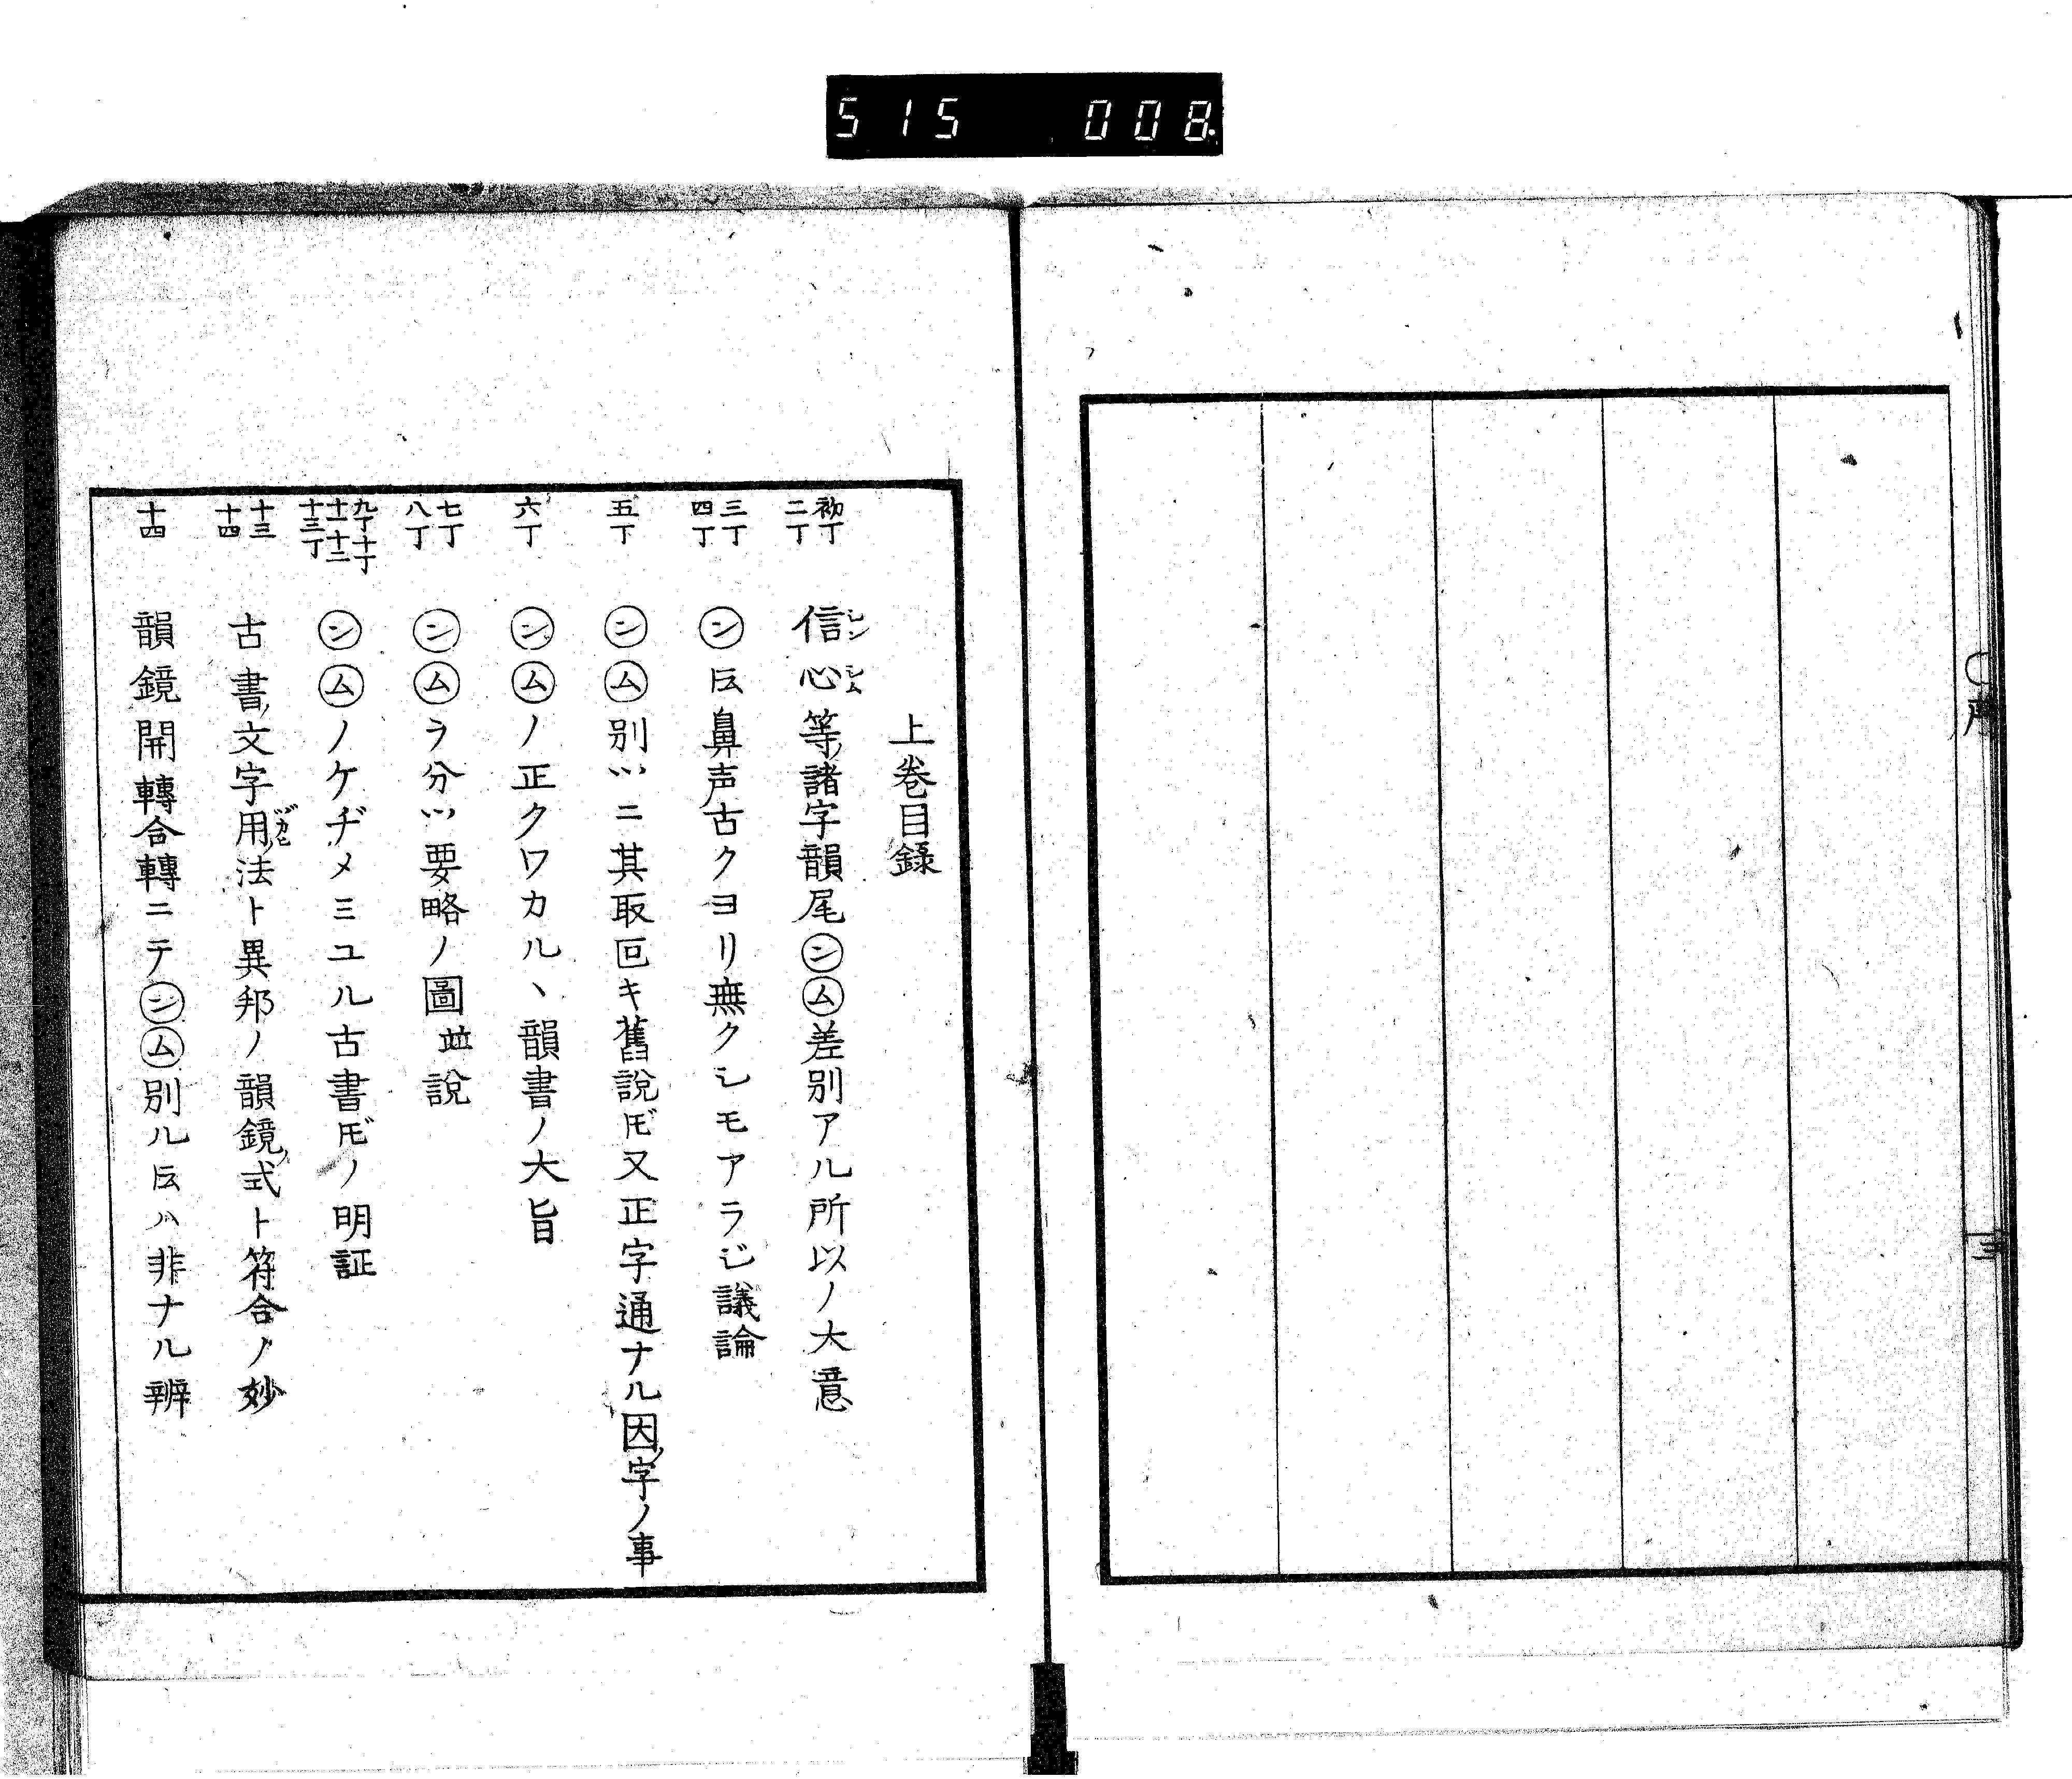 515 008.
序
三
上巻目録
初丁
二丁
信心等ノ諸字韻尾㋛㋰差別アル所以ノ大意
シン シム
三丁
四丁
ン圧鼻声古クヨリ無クシモアラジ議論
五丁
ンム別ツニ其取回キ舊説𪜈又正字通ナル因ノ字ノ事
六丁
ンムノ正クワカルヽ韻書ノ大旨
七丁
八丁
ンムヲ分ツ要略ノ圖並説
九丁十丁
十一十二
十三丁
ンムノケヂメミユル古書𪜈ノ明証
十三
十四
古書ノ文字用ノ法ト異邦ノ韻鏡ノ式ト符合ノ妙
ヅカヒ
十四
韻鏡開轉合轉ニテンム別ル圧ハ非ナル辨